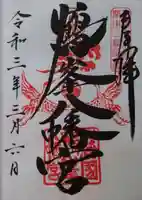 奉拝
鶴峯八幡宮
令和三年三月六日